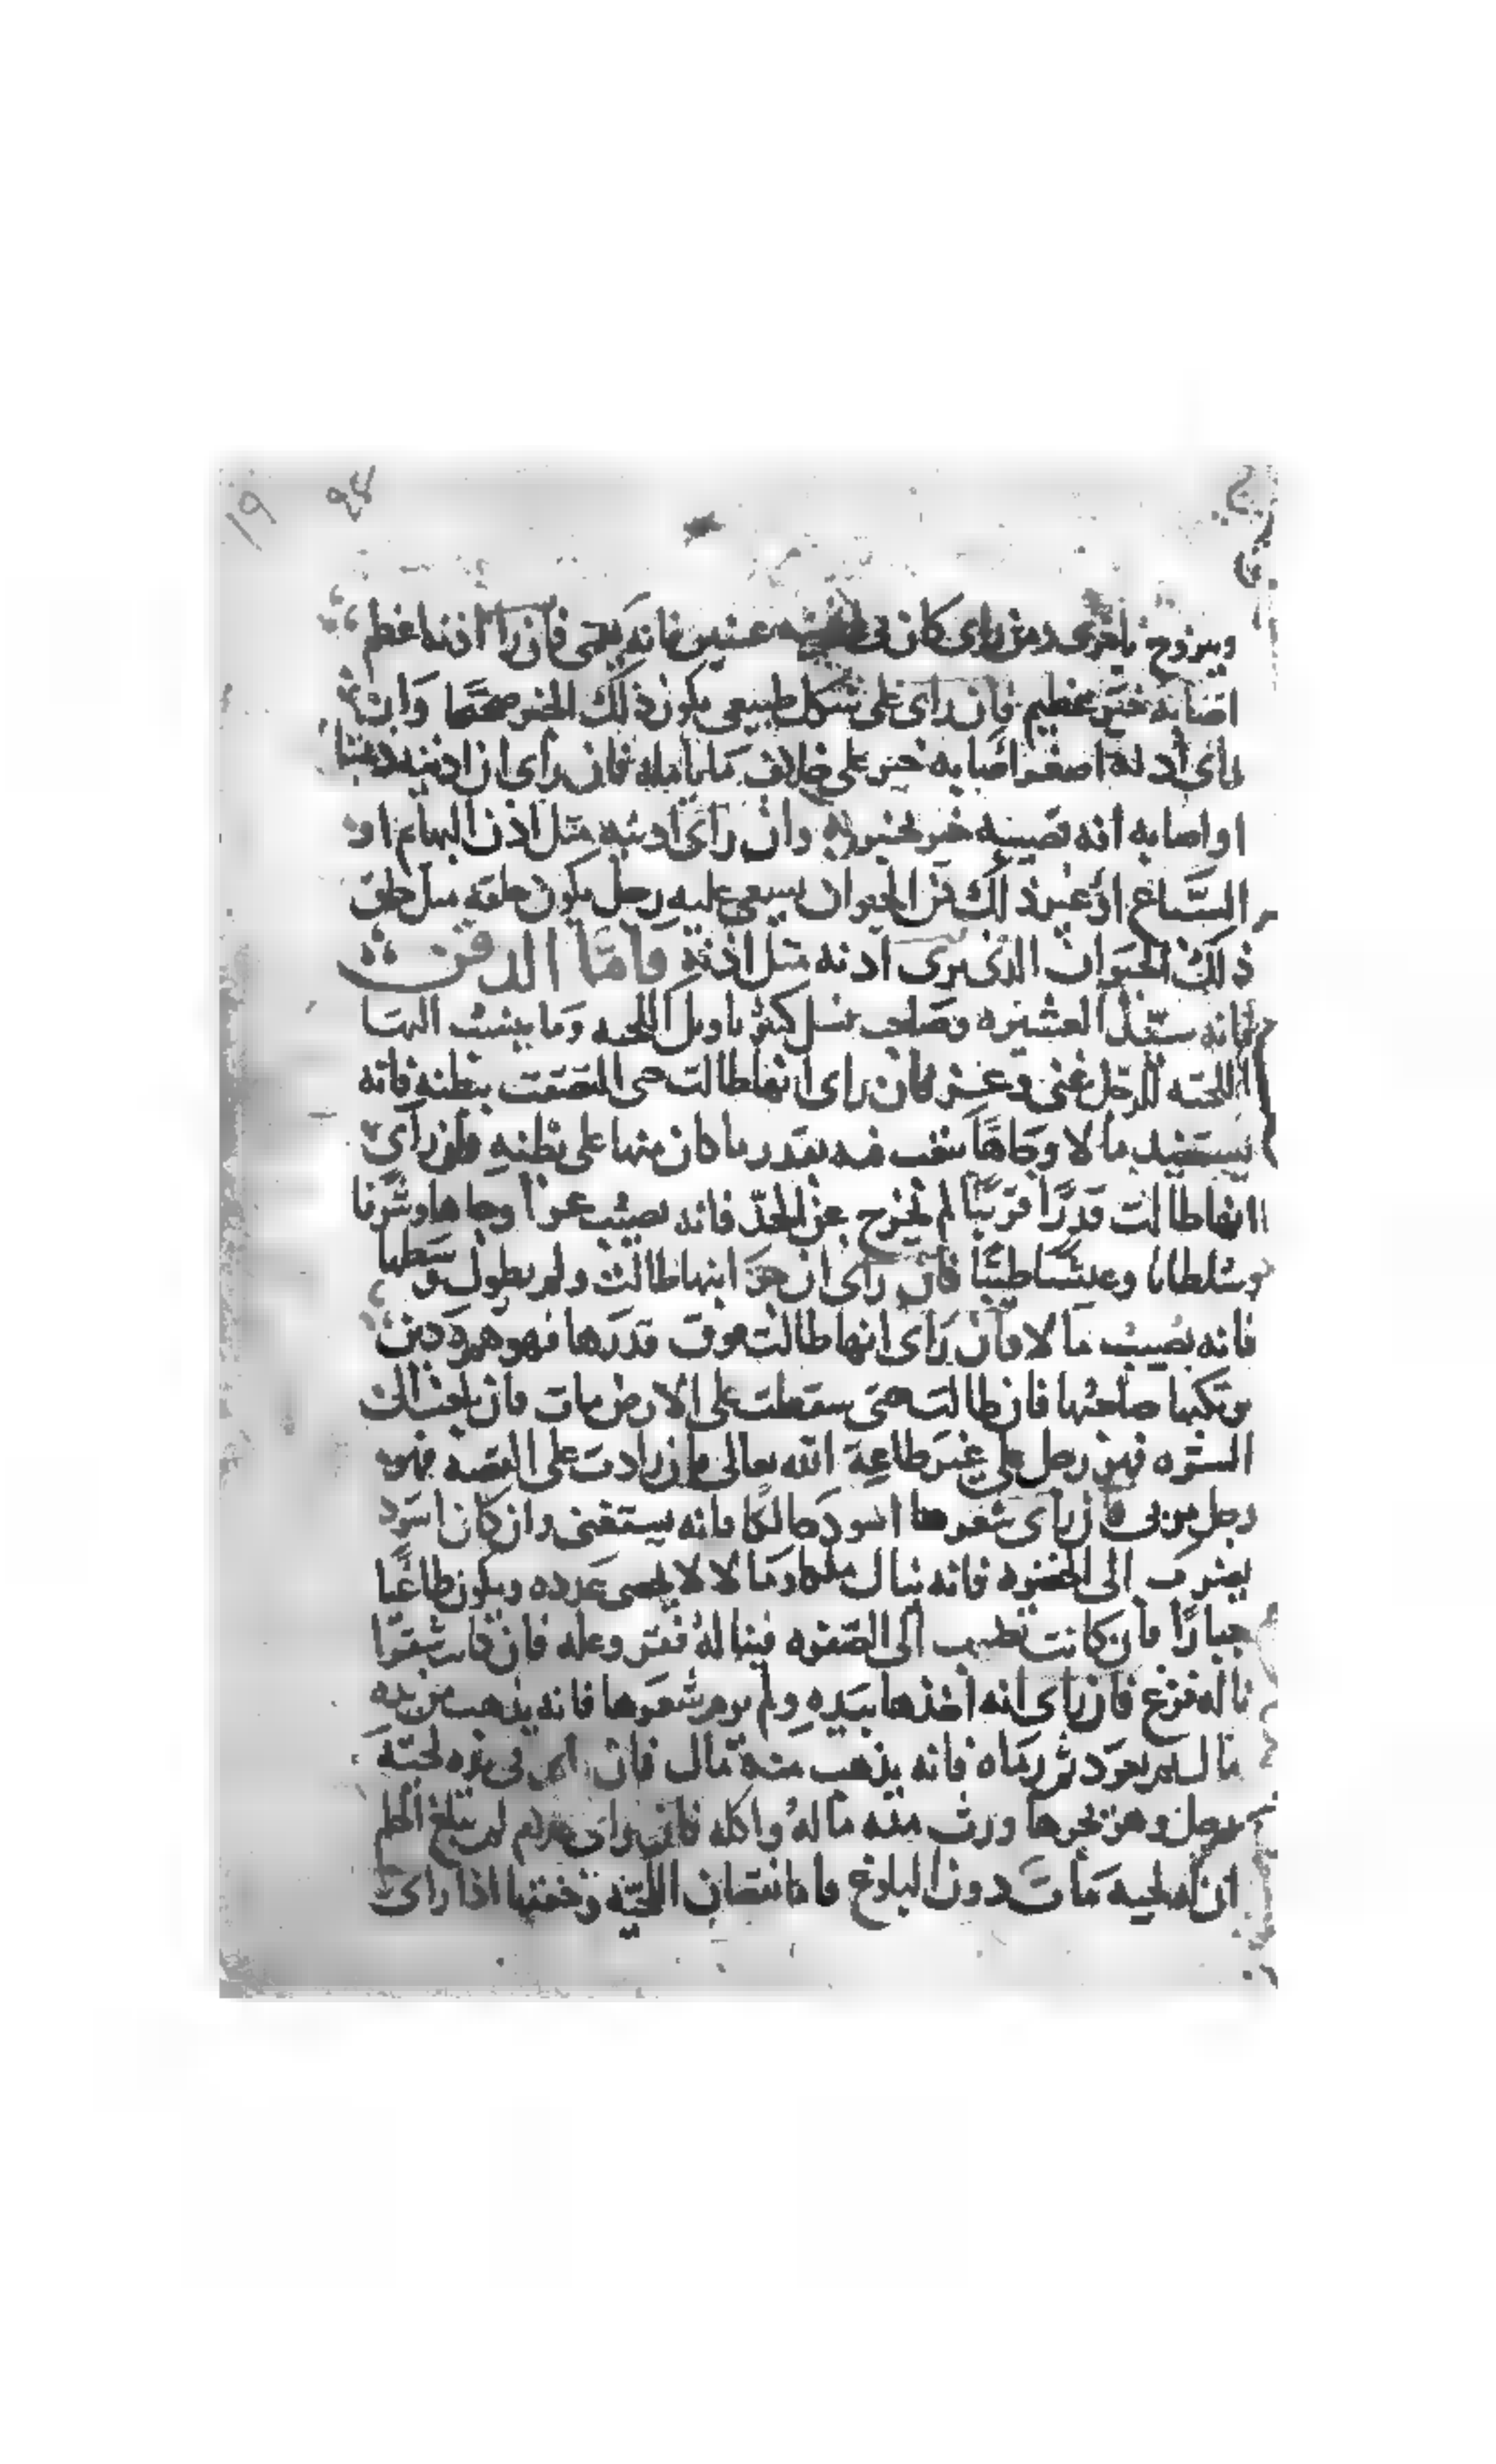 ويتزوج باخرى ومن راى كان فى عينين فانه يعمى فان راا اذنه اعظم
اصابه خير عظيم فان راى على شكل طبيعى يكون ذلك الخبر صحيحا وان
راى أذنه اصغر اصابه خير على خلاف ما يامله فان راى ان اذنيه
او اصابه انه تصيبه وان راى اذنيه مثل اذن البهايم او
السباع او غير ذلك من الحيوان يسعى عليه رجل يكون خلقه مثل خلق
ذلك الحيوان الذى يرى اذنه مثل اذنه فامّا الدقن
فانه سيّد العشيره وصاحب نسل كثير تاويل اللحيه وما ينسب اليها
اللحيه للرجل غنى وعز فان راى انها طالت حتى التصقت ببطنه فانه
يستفيد مالا وجاهًا يتعب فيه بقدر ما كان منها على بطنه فان راى
انها طالت قدرًا قريبًا لم تخرج عن الحدّ فانه يصيب عزا وجاها وشرفا
وسلطانا وعيشا طيبًا فان راى ان جنبها طالت ولم يطول وسطها
فانه يصيب مالا فان راى انها طالت فوق قدرها فهو همّ ودين
يرتكبها صاحبها فان طالت حتى سقطت على الارض مات فان بلغت الى
السرّه فهو رجل على غير طاعة الله تعالى فان زادت على القبضه فهو
رجل مربى فان راى شعرها اسود حالكًا فانه يستغنى وان كان اسود
يضرب الى الخضره فانه ينال ملكا ومالا لا يحصى عدده ويكون طاغيًا
جبارًا فان كانت تضرب الى الصفره فيناله فقر وعله فان كانت شقرا
ناله فزع فان راى انه اخذها بيده ولم يرم شعرها فانه يذهب من يده
مال ثم يعود ثم رماه فانه يذهب منه مال فان راى فى يده لحية
رجل وهو يجرها ورث منه ماله واكله فان راى غلام لم يبلغ الحلم
ان له لحيه مات دون البلوغ فاما نقصان اللحيّه وخفتها اذا راى